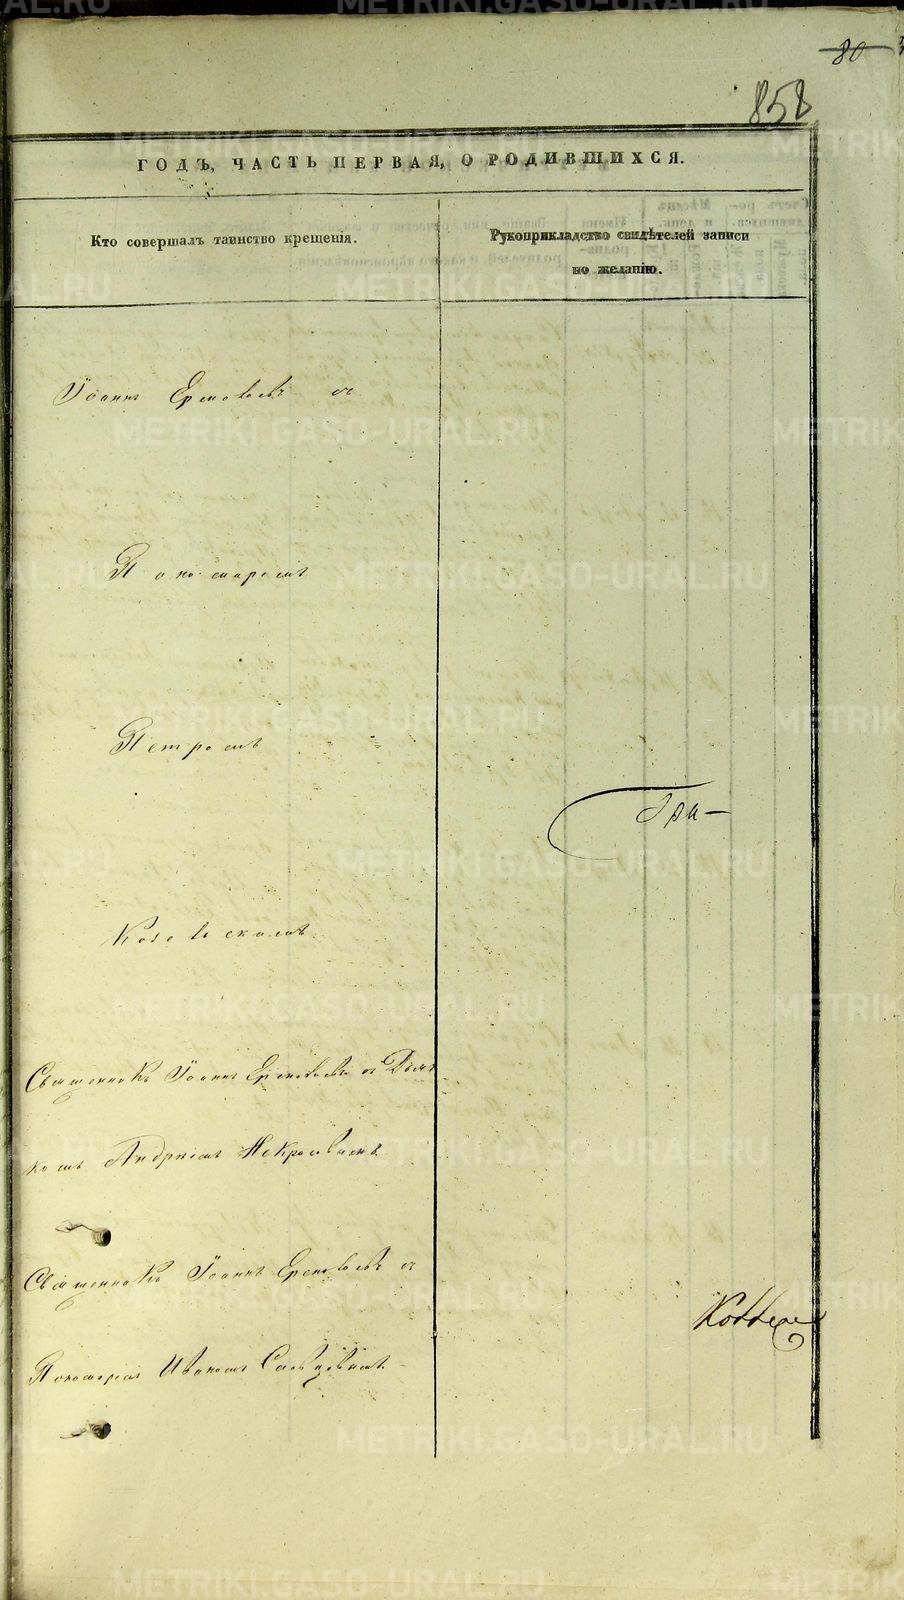 80
858
ГОДЪ, ЧАСТЬ ПЕРВАЯ, О РОДИВШИХСЯ.
Кто совершалъ таинство крещенія.
Рукоприкладство свидѣтелей записи
по желанію.
Іоаннъ съ
Пономаремъ
Петромъ
Гри-
Козевскимъ
Священникъ Іоаннъ съ Дьяч
комъ Андреемъ Некрасовымъ
Священникъ Іоаннъ съ
Пономаремъ Иваномъ
METRIKI.GASO-URAL.RU